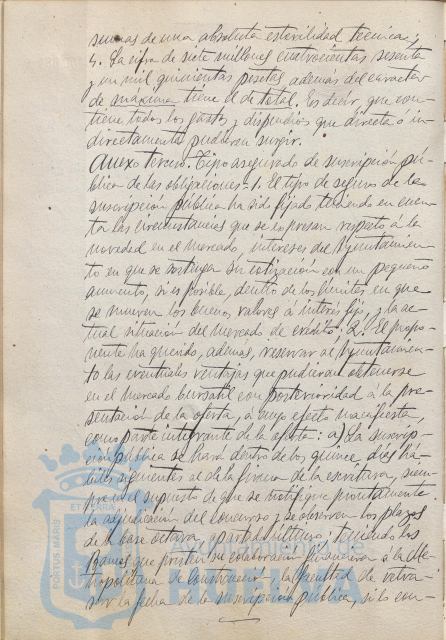 sumas de una absoluta esterilidad técnica;
4. La cifra de siete millones cuatrocientas sesenta
y un mil quinientas pesetas, además del caracter
de máxima tiene el de total. Es decir, que con-
tiene todos los gastos y dispendios que directa ó in-
directamente pudieran surgir.
Anexo tercero. Tipo asegurado de suscripción pú-
blica de las obligaciones. 1. El tipo de seguro de la
suscripción pública ha sido fijado teniendo en cuen-
ta las circunstancias que se expresan respecto á la
novedad en el mercado, intereses del Ayuntamien-
to en que se sostenga su cotización con un pequeño
aumento, si es posible, dentro de los límites en que
se mueven los buenos valores á interés fijo, y la ac-
tual situación del mercado de crédito. 2. El propo-
nente ha querido, además, reservar al Ayuntamien-
to las eventuales ventajas que pudieran obtenerse
en el mercado bursatil con posterioridad á la pre-
sentación de la oferta, á cuyo efecto manifiesta,
como parte integrante de la oferta: a) La suscrip-
ción pública se hará dentro de los quince días há-
biles siguientes al de la firma de la escritura, siem-
pre en el supuesto de que se notifique prontamente
la adjudicación del concurso y se observen los plazos
de la base octava, apartado último, teniendo los
Bancos que prestan su colaboración financiera á la Me-
tropolitana de Construcción, la facultad de retra-
sar la fecha de la suscripción pública, si lo con-
PORTUS MARIS
ET TERRAE
Ayuntamiento de
HUELVA